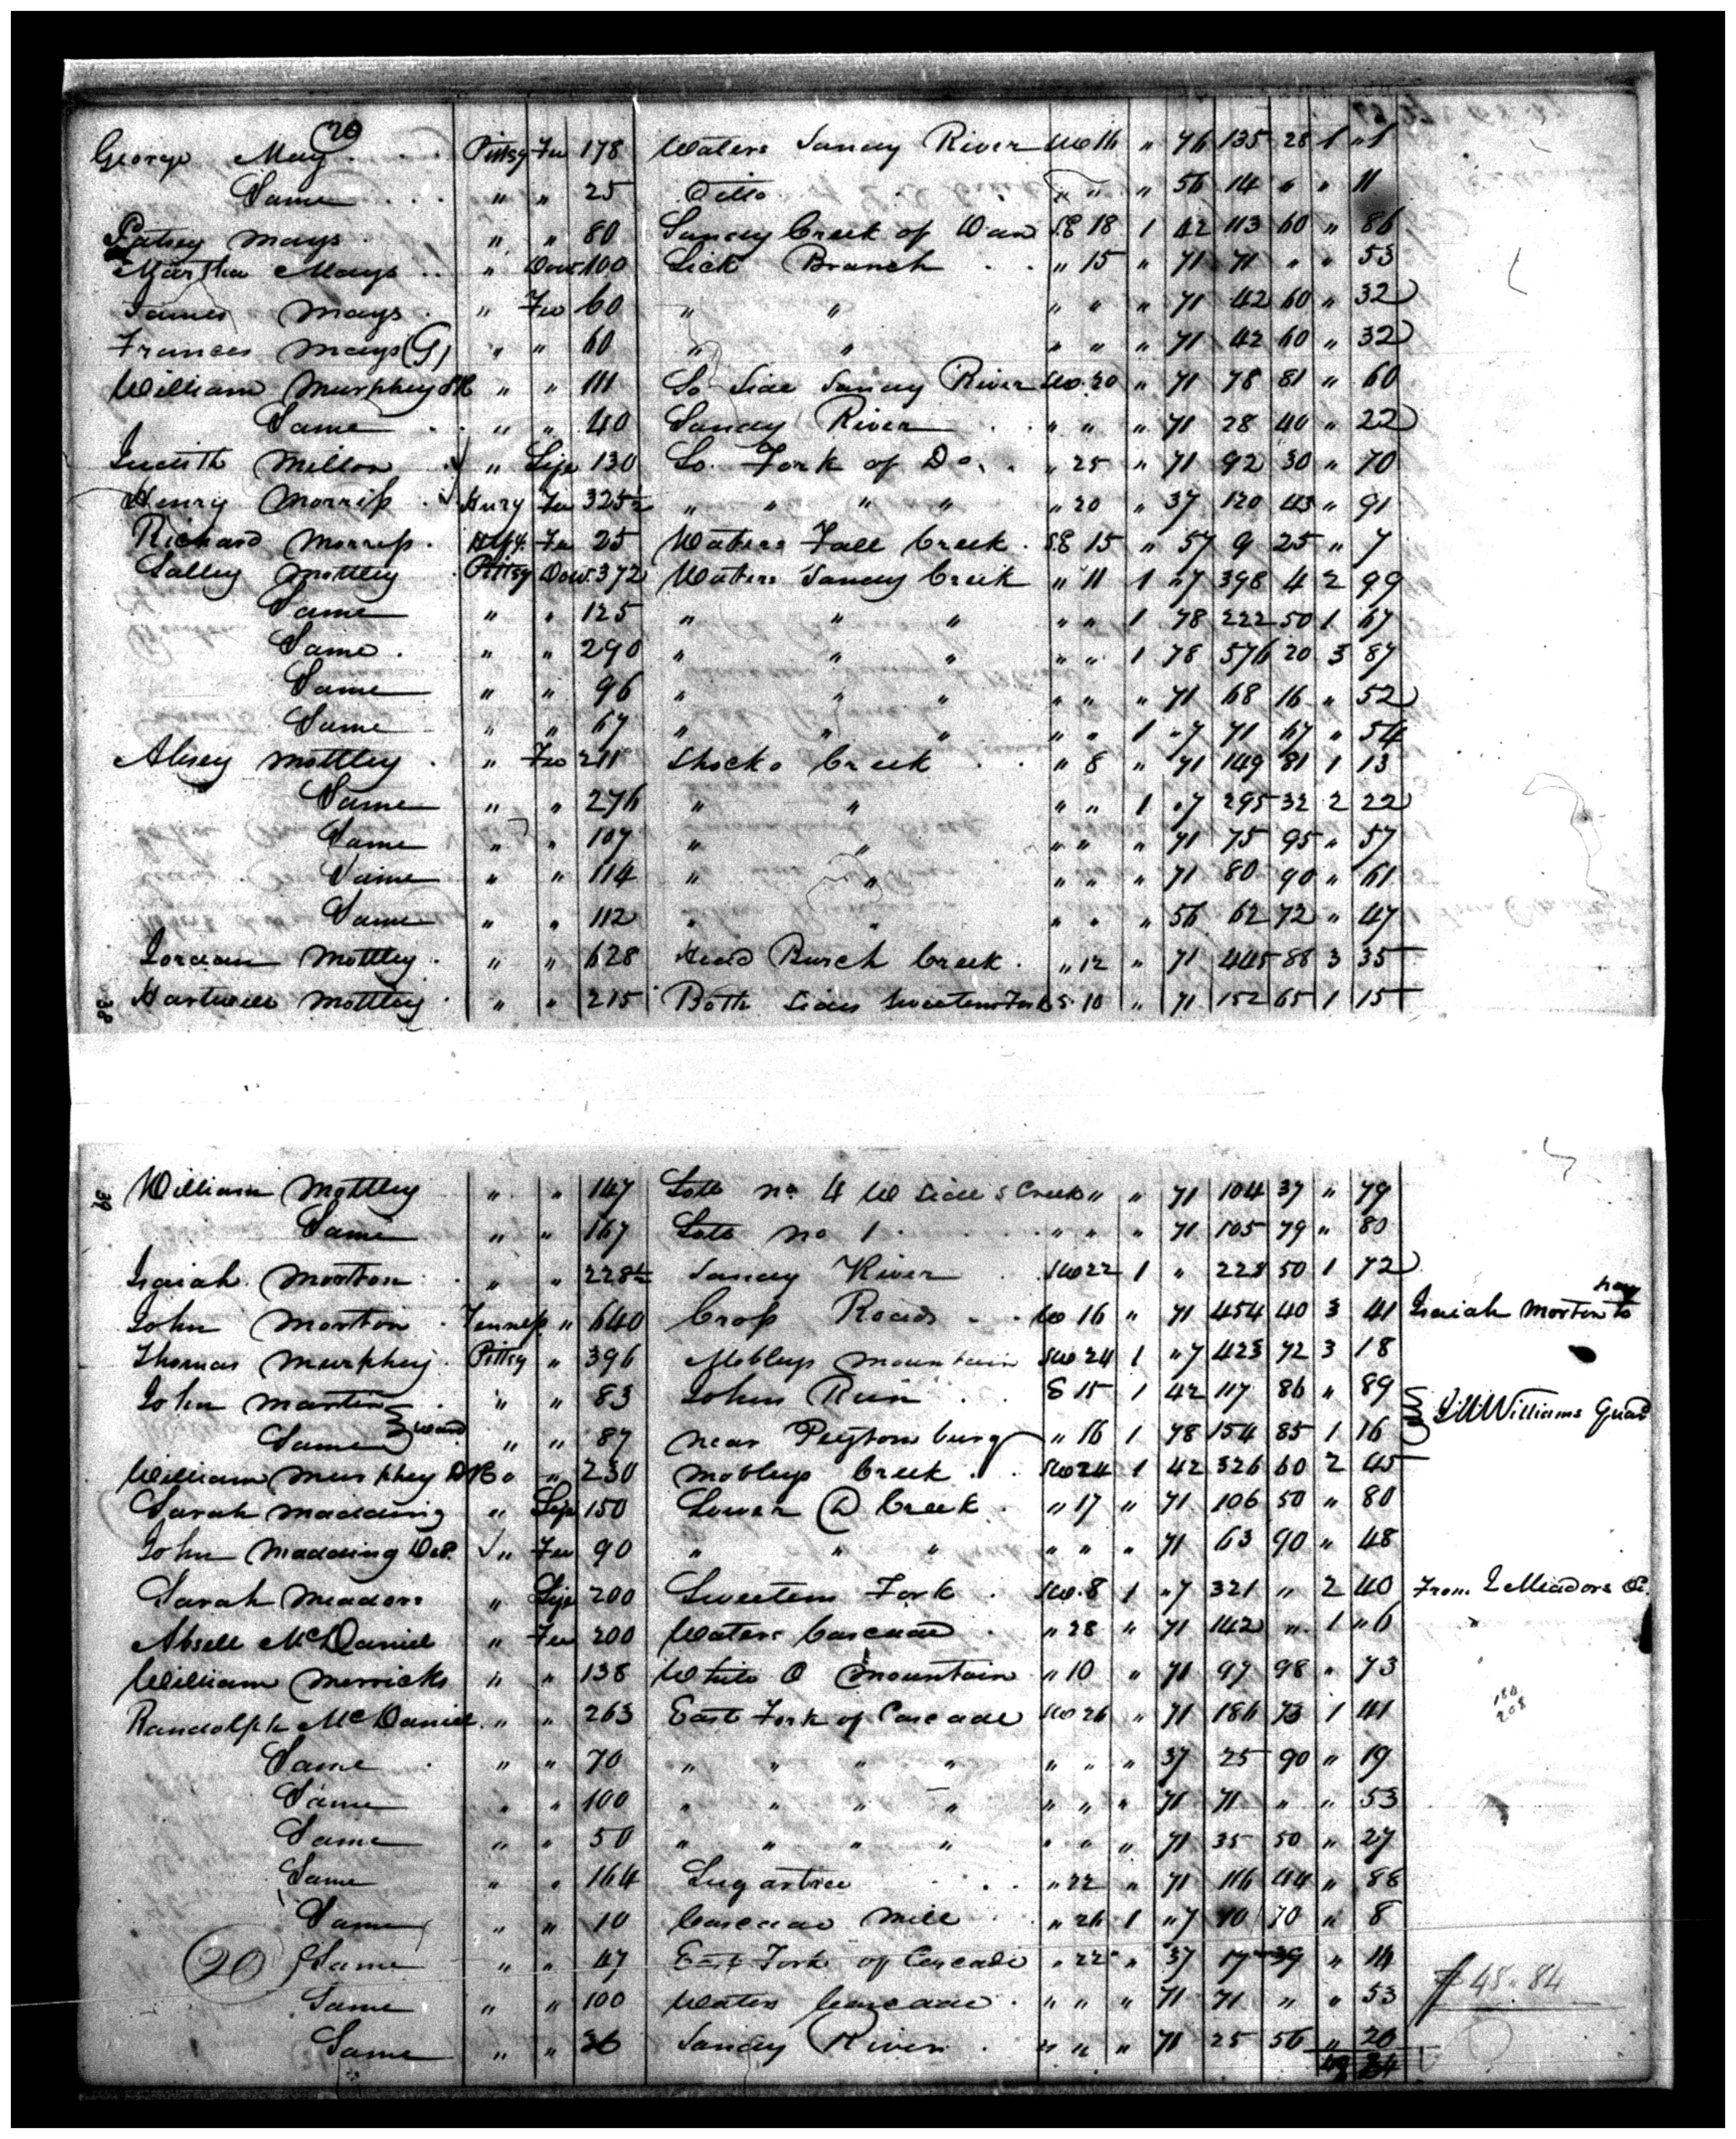 20
George May . . . Pittsy Fee 178 Waters Sandy River SW 16 " 76 135 28 1 " 1
Same . . . " " 25 Ditto " " " 56 14 " " 11
Patsey Mays . " " 80 Sandy Creek of Dan SE 18 1 42 113 60 " 86
Martha Mays . . " Dow 100 Lick Branch . . " 15 " 71 71 " " 53
James Mays . " Fee 60 " " " " " 71 42 60 " 32
Frances Mays (G) " " 60 " " " " " 71 42 60 " 32
William Murphey SR " " 111 So Side Sandy River SW 20 " 71 78 81 " 60
Same . . " " 40 Sandy River . . " " " 71 28 40 " 22
Judith Millon " Life 130 So. Fork of Do. . " 25 " 71 92 30 " 70
Henry Morriss . Hury Fee 325½ " " " " " 20 " 37 120 43 " 91
Richard Morriss . Fee 25 Waters Fall Creek . SE 15 " 37 9 25 " 7
Salley Mottley . Pittsy Dow 372 Waters Sandy Creek " 11 1 " 7 398 4 2 99
Same " " 125 " " " " " 1 78 222 50 1 67
Same . " " 290 " " " " " 1 78 576 20 3 87
Same " " 96 " " " " " " 71 68 16 " 52
Same " " 67 " " " " " 1 " 7 71 67 " 54
Alusey Mottley . " Fee 211 Shocko Creek . . " 8 " 71 149 81 1 13
Same " " 276 " " " " 1 " 7 295 32 2 22
Same " " 107 " " " " " 71 75 95 " 57
Same " " 114 " " " " " 71 80 90 " 61
Same " " 112 " " " " " 56 62 72 " 47
Jordan Mottley . " " 628 Head Burch Creek . " 12 " 71 445 88 3 35
38 Hartwell Mottley . " " 215 Both Sides Sweetens Fork S 10 " 71 152 65 1 15
39 William Mottley " " 147 Lott no 4 W Side S Creek " " 71 104 37 " 79
Same " " 167 Lott No 1 . " " " 71 105 79 " 80
Isaiah Morton . " " 228½ Sandy River . SW 22 1 " 228 50 1 72
John Morton . Tenness " 640 Cross Roads . . W 16 " 71 454 40 3 41 Isaiah Morton to pay
Thomas Murphey . Pittsy " 396 Mobleys Mountain SW 24 1 " 7 423 72 3 18
John Martin . " " 83 Johns Run . . S 15 1 42 117 86 " 89
Same ward " " 87 near Peytonsburg " 16 1 78 154 85 1 16 Williams Guad
William Murphey " 230 Mobleys Creek . . SW 24 1 42 326 60 2 45
Sarah Madding " Life 150 Lower D Creek . " 17 " 71 106 50 " 80
John Madding Decd. " Fee 90 " " " " " " 71 63 90 " 48
Sarah Meadors " Life 200 Sweetens Fork . SW 8 1 " 7 321 " 2 40 From J Meadors
Absell McDaniel " Fee 200 Waters Cascade . " 28 " 71 142 " 1 " 6
William Merricks " " 138 White O Mountain . " 10 " 71 97 98 " 73
Randolph McDaniel . " " 263 East Fork of Cascade SW 26 " 71 186 73 1 41
Same . " " 70 " " " " " " " 37 25 90 " 19
Same " " 100 " " " " " " " 71 71 " " 53
Same " " 50 " " " " " " " 71 35 50 " 27
Same " " 164 Sugartree . . " 22 " 71 116 44 " 88
Same " " 10 Cascade Mill . . " 26 1 " 7 10 70 " 8
20 Same " " 47 East Fork of Cascade " 22 " 37 17 39 " 14
Same " " 100 Waters Cascade . " " " 71 71 " " 53 $48.84
Same " " 36 Sandy River . " " " 71 25 56 " 20